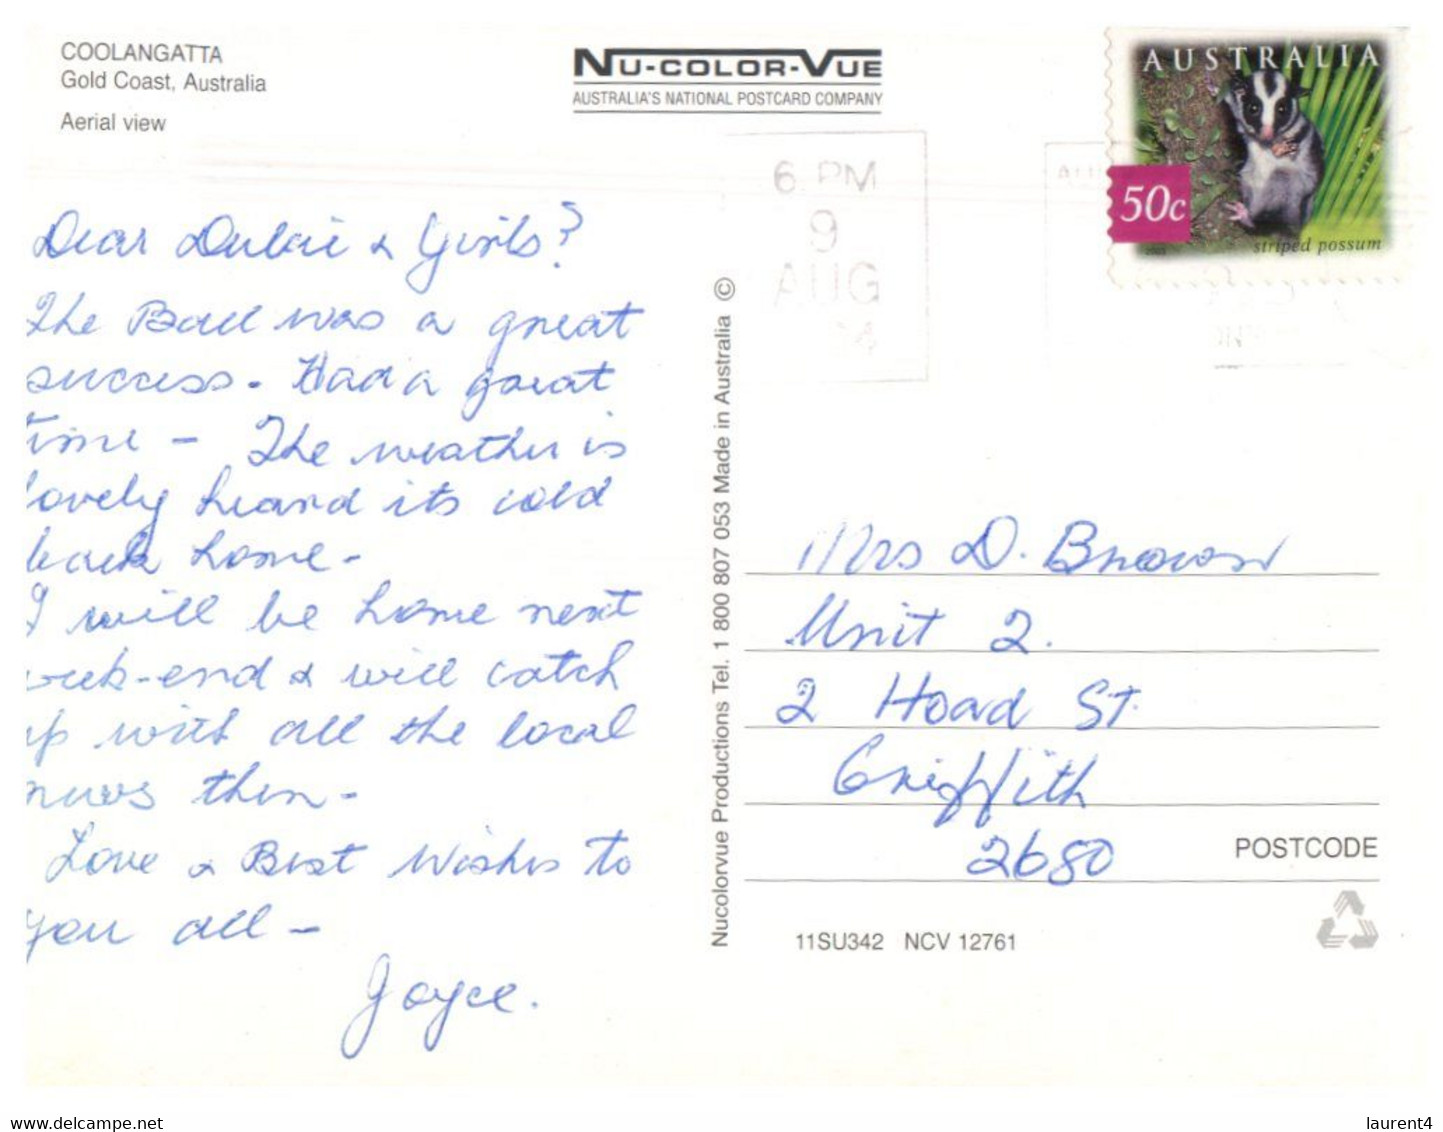 COOLANGATTA
Gold Coast, Australia
Aerial view
NU-COLOR-VUE
AUSTRALIA'S NATIONAL POSTCARD COMPANY
AUSTRALIA
50c
striped possum
6 PM
9
AUG
04
Dear Dulcie & Girls?
The Ball was a great
success - Had a great
time - The weather is
lovely heard its cold
back home -
I will be home next
week-end & will catch
up with all the local
news then -
Love & Best Wishes to
you all -
Joyce.
Nucolorvue Productions Tel. 1 800 807 053 Made in Australia ©
Mrs D. Brown
Unit 2.
2 Hoad St.
Griffith
2680
POSTCODE
11SU342 NCV 12761
www.delcampe.net
laurent4